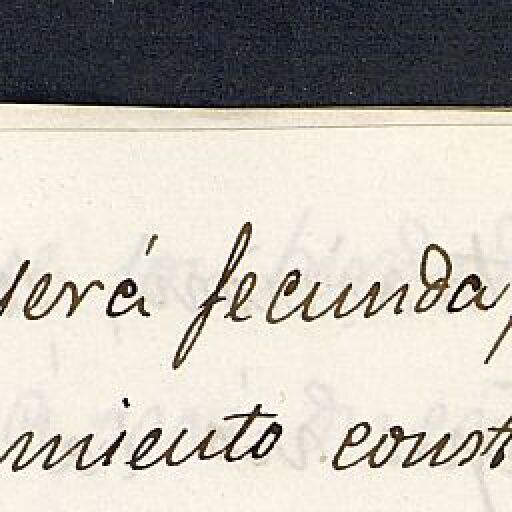 será fecunda,
miento const